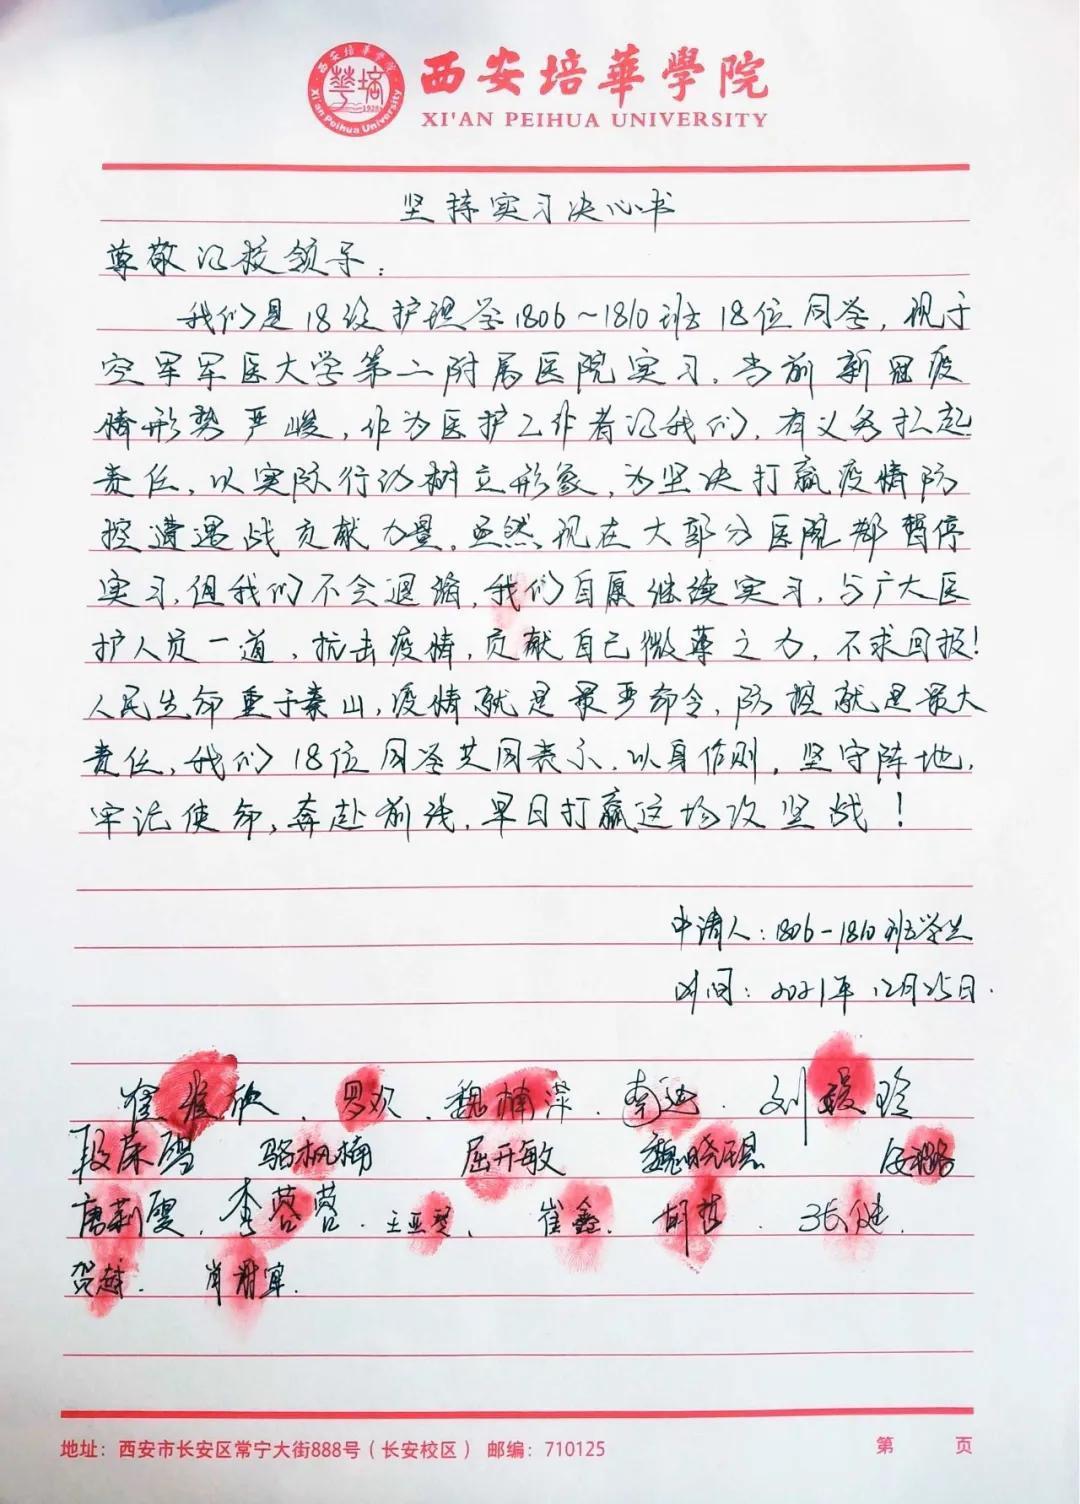 西安培華學院
XI'AN PEIHUA UNIVERSITY
西安培華學院
Xi'an Peihua University
華培
1928
坚持实习决心书
尊敬的校领导:
我们是18级护理学1806~1810班18位同学,现于
空军军医大学第二附属医院实习,当前新冠疫
情形势严峻,作为医护工作者的我们,有义务扛起
责任,以实际行动树立形象,为坚决打赢疫情防
控遭遇战贡献力量,虽然现在大部分医院都暂停
实习,但我们不会退缩,我们自愿继续实习,与广大医
护人员一道,抗击疫情,贡献自己微薄之力,不求回报!
人民生命重于泰山,疫情就是最严命令,防控就是最大
责任,我们18位同学共同表示,以身作则,坚守阵地,
牢记使命,奔赴前线,早日打赢这场攻坚战!
申请人:1806-1810班学生
时间:2021年12月25日.
罗欢.魏楠.南.刘媛玲
段荣雪 骆枫楠 屈开敏 魏晓
唐莉雯.李蓉蓉.王亚琴.崔鑫.胡哲.张健.
贺越.肖谢宜.
地址:西安市长安区常宁大街888号(长安校区) 邮编:710125
第 页